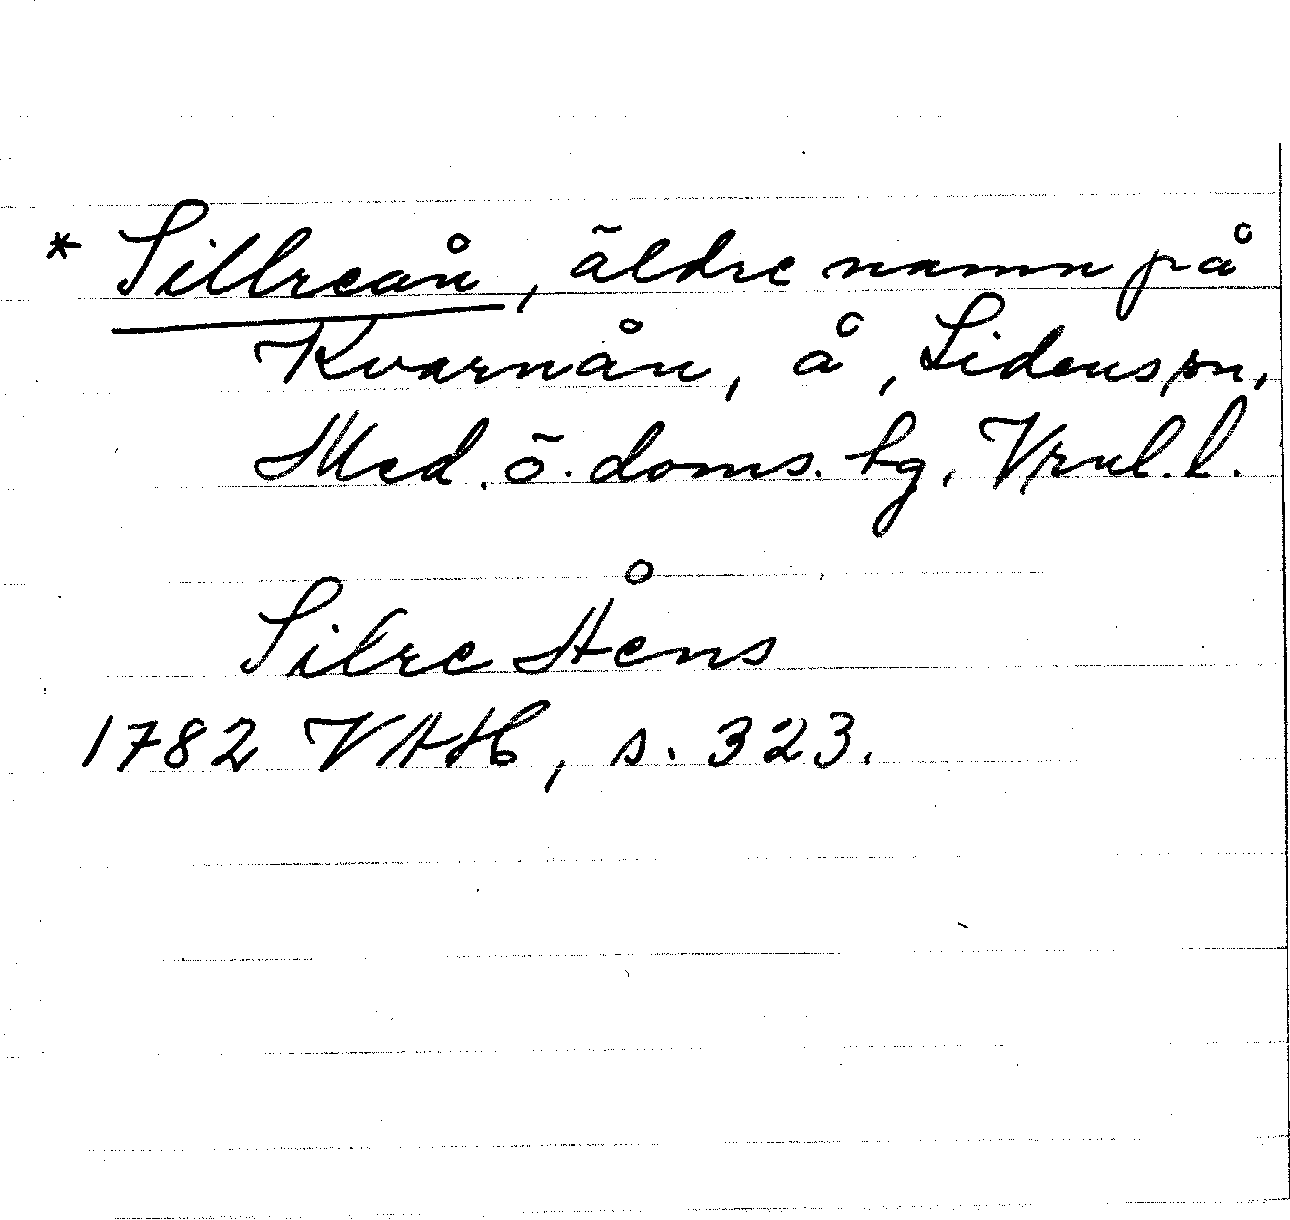 * Sillreån, äldre namn på
Kvarnån, å, Lidens sn,
Med. ö. doms. tg, Vrnl. l.
Silre Åens
1782 VAH, s. 323.